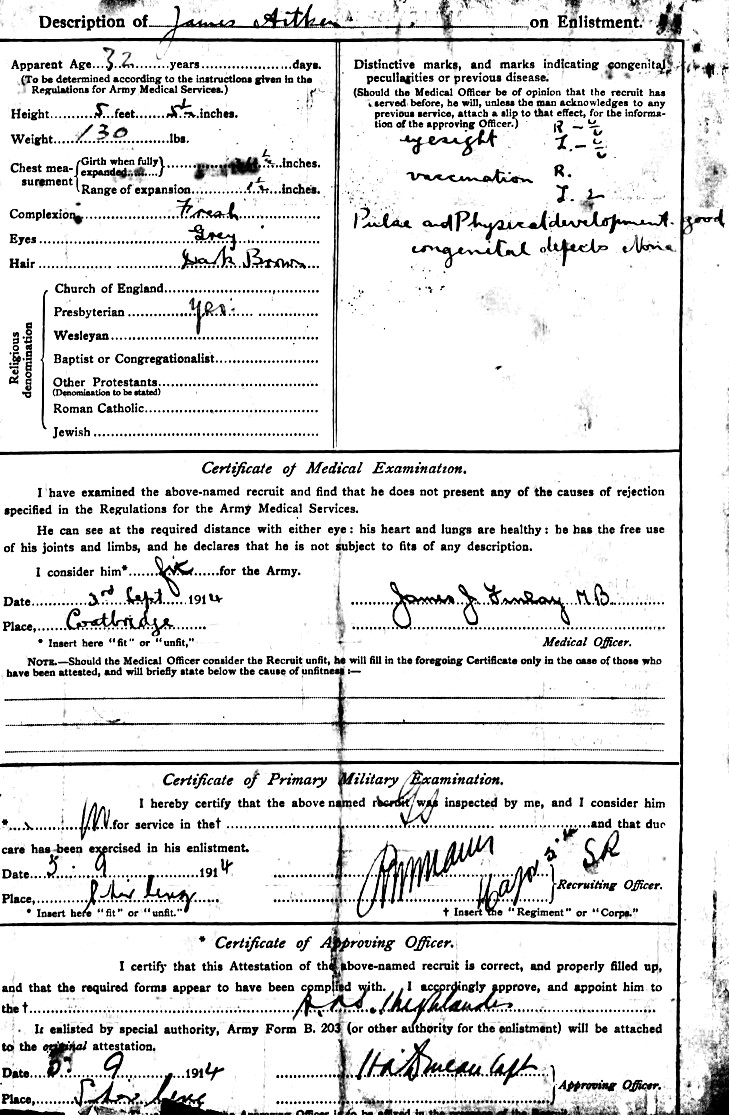 Description of James Aitken on Enlistment.
Apparent Age 32 years days.
(To be determined according to the instructions given in the
Regulations for Army Medical Services.)
Height 5 feet 5½ inches.
Weight 130 lbs.
Chest measurement
Girth when fully
expanded ½ inches.
Range of expansion 1½ inches.
Complexion Fresh
Eyes Grey
Hair Dark Brown
Religious
denomination
Church of England
Presbyterian Yes.
Wesleyan
Baptist or Congregationalist
Other Protestants
(Denomination to be stated)
Roman Catholic
Jewish
Distinctive marks, and marks indicating congenital
peculiarities or previous disease.
(Should the Medical Officer be of opinion that the recruit has
served before, he will, unless the man acknowledges to any
previous service, attach a slip to that effect, for the informa-
tion of the approving Officer.)
eyesight R - 6/6
L - 6/6
vaccination R.
L. 2
Pulse and Physical development good
congenital defects None
Certificate of Medical Examination.
I have examined the above-named recruit and find that he does not present any of the causes of rejection
specified in the Regulations for the Army Medical Services.
He can see at the required distance with either eye: his heart and lungs are healthy: he has the free use
of his joints and limbs, and he declares that he is not subject to fits of any description.
I consider him* fit for the Army.
Date 3rd Sept 1914
James J. Finlay M.B.
Place, Coatbridge
* Insert here "fit" or "unfit,"
Medical Officer.
NOTE.—Should the Medical Officer consider the Recruit unfit, he will fill in the foregoing Certificate only in the case of those who
have been attested, and will briefly state below the cause of unfitness:—
Certificate of Primary Military Examination.
I hereby certify that the above named recruit was inspected by me, and I consider him
* for service in the† and that due
care has been exercised in his enlistment.
Date 5. 9 1914
Major SR
Recruiting Officer.
Place,
* Insert here "fit" or "unfit."
† Insert the "Regiment" or "Corps."
* Certificate of Approving Officer.
I certify that this Attestation of the above-named recruit is correct, and properly filled up,
and that the required forms appear to have been complied with. I accordingly approve, and appoint him to
the† A. & S. Highlanders
If enlisted by special authority, Army Form B. 203 (or other authority for the enlistment) will be attached
to the original attestation.
Date 5. 9 1914
Capt
Approving Officer.
Place,